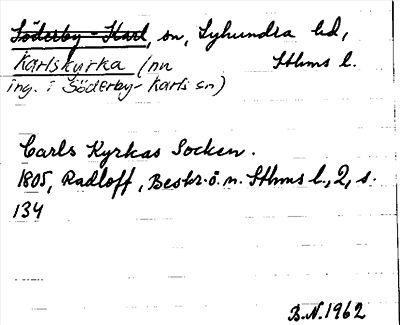 Söderby-Karl, sn, Lyhundra hd,
Karlskyrka (nu Sthms l.
ing. i Söderby-Karls sn)
Carls Kyrkas Socken.
1805, Radloff, Beskr. ö. n. Sthms l., 2, s.
134
B.N. 1962